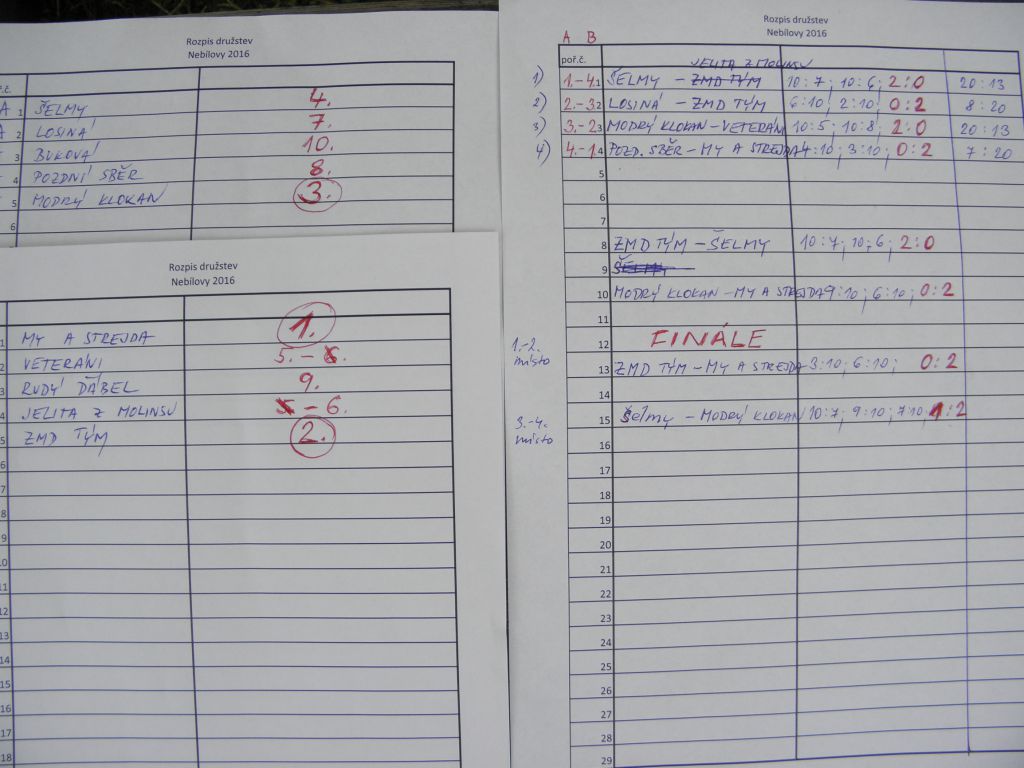 Rozpis družstev
Nebílovy 2016
A 1 ŠELMY 4.
2 LOSINÁ 7.
3 BUKOVÁ 10.
4 POZDNÍ SBĚR 8.
5 MODRÝ KLOKAN 3.
6
Rozpis družstev
Nebílovy 2016
1 MY A STREJDA 1.
2 VETERÁNI 5. - 6.
3 RUDÝ ĎÁBEL 9.
4 JELITA Z MOLINSU 5 - 6.
5 ZMD TÝM 2.
6
7
8
9
10
11
12
13
14
15
16
17
18
Rozpis družstev
Nebílovy 2016
A B
poř.č. JELITA Z MOLINSU
1) 1.-4. 1 ŠELMY - ZMD TÝM 10:7; 10:6; 2:0 20:13
2) 2.-3. 2 LOSINÁ - ZMD TÝM 6:10; 2:10; 0:2 8:20
3) 3.-2. 3 MODRÝ KLOKAN - VETERÁNI 10:5; 10:8; 2:0 20:13
4) 4.-1. 4 POZD. SBĚR - MY A STREJDA 4:10; 3:10; 0:2 7:20
5
6
7
8 ZMD TÝM - ŠELMY 10:7; 10:6; 2:0
9 ŠELMY
10 MODRÝ KLOKAN - MY A STREJDA 9:10; 6:10; 0:2
11
12 FINÁLE
1.-2. místo
13 ZMD TÝM - MY A STREJDA 3:10; 6:10; 0:2
14
3.-4. místo
15 Šelmy - MODRÝ KLOKAN 10:7; 9:10; 7:10 1:2
16
17
18
19
20
21
22
23
24
25
26
27
28
29